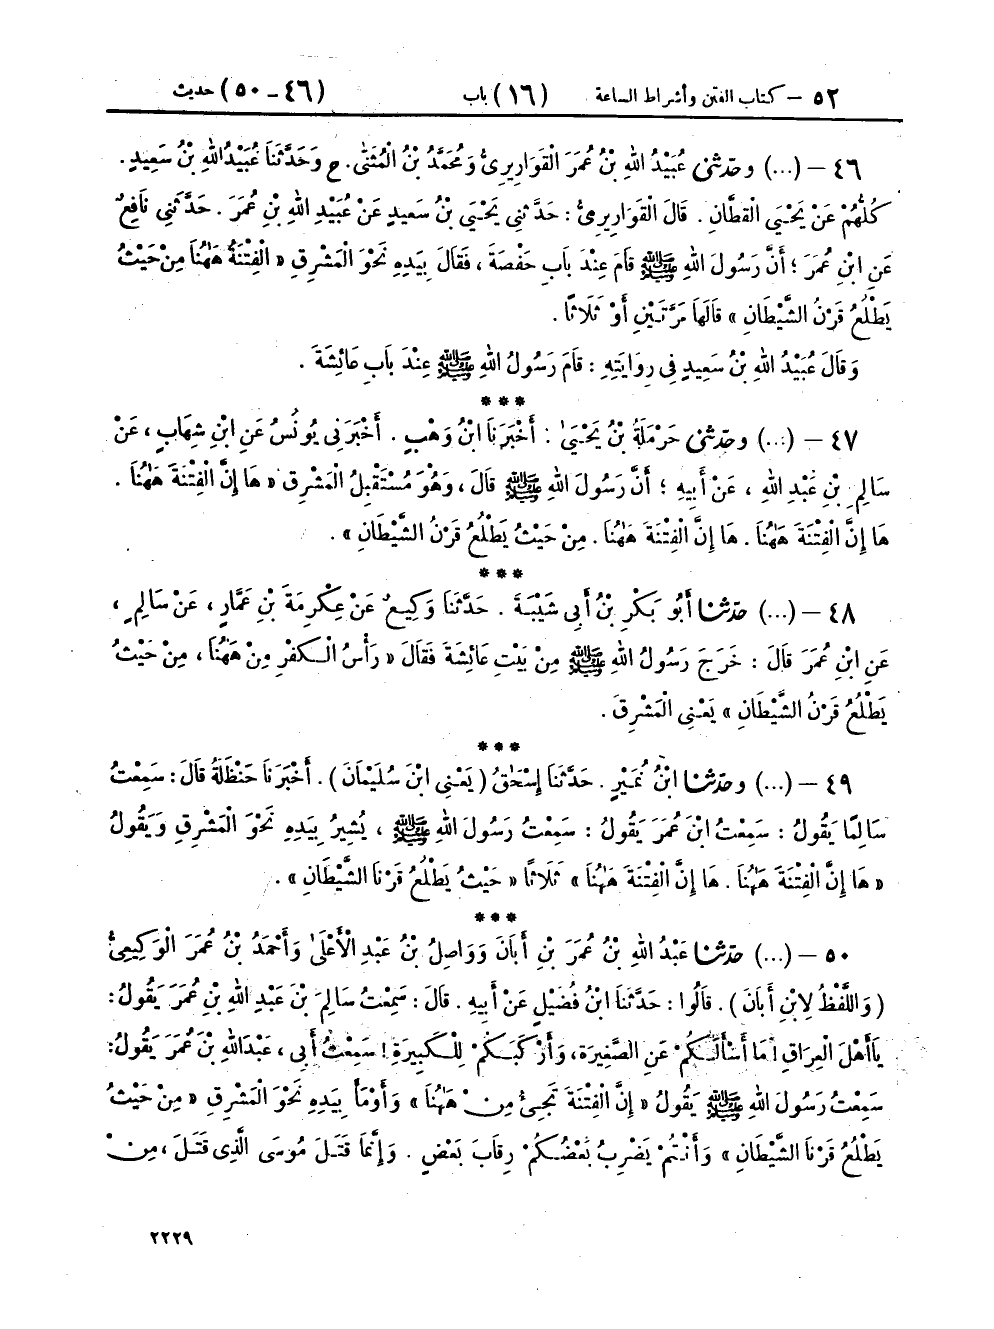 ٥٢ – كتاب الفتن وأشراط الساعة (١٦) باب (٤٦ - ٥٠) حديث
٤٦ – (...) وحدّثنى عُبَيْدُ اللهِ بْنُ عُمَرَ الْقَوَارِيرِىُّ وَمُحَمَّدُ بْنُ الْمُثَنَّى. ح وَحَدَّثَنَا عُبَيْدُاللهِ بْنُ سَعِيدٍ.
كُلُّهُمْ عَنْ يَحْيَى الْقَطَّانِ. قَالَ الْقَوَارِيرِىُّ: حَدَّثَنِى يَحْيَى بْنُ سَعِيدٍ عَنْ عُبَيْدِ اللهِ بْنِ عُمَرَ. حَدَّثَنِى نَافِعٌ
عَنِ ابْنِ عُمَرَ؛ أَنَّ رَسُولَ اللهِ ﷺ قَامَ عِنْدَ بَابِ حَفْصَةَ، فَقَالَ بِيَدِهِ نَحْوَ الْمَشْرِقِ « الْفِتْنَةُ هَهُنَا مِنْ حَيْثُ
يَطْلُعُ قَرْنُ الشَّيْطَانِ » قَالَهَا مَرَّتَيْنِ أَوْ ثَلَاثًا.
وَقَالَ عُبَيْدُ اللهِ بْنُ سَعِيدٍ فِى رِوَايَتِهِ: قَامَ رَسُولُ اللهِ ﷺ عِنْدَ بَابِ عَائِشَةَ.
***
٤٧ – (...) وحدّثنى حَرْمَلَةُ بْنُ يَحْيَىٰ: أَخْبَرَنَا ابْنُ وَهْبٍ. أَخْبَرَنِى يُونُسُ عَنِ ابْنِ شِهَابٍ، عَنْ
سَالِمِ بْنِ عَبْدِ اللهِ، عَنْ أَبِيهِ؛ أَنَّ رَسُولَ اللهِ ﷺ قَالَ، وَهُوَ مُسْتَقْبِلُ الْمَشْرِقِ « هَا إِنَّ الْفِتْنَةَ هَهُنَا.
هَا إِنَّ الْفِتْنَةَ هَهُنَا. هَا إِنَّ الْفِتْنَةَ هَهُنَا. مِنْ حَيْثُ يَطْلُعُ قَرْنُ الشَّيْطَانِ ».
***
٤٨ – (...) حدّثنا أَبُو بَكْرِ بْنُ أَبِى شَيْبَةَ. حَدَّثَنَا وَكِيعٌ عَنْ عِكْرِمَةَ بْنِ عَمَّارٍ، عَنْ سَالِمٍ،
عَنِ ابْنِ عُمَرَ قَالَ: خَرَجَ رَسُولُ اللهِ ﷺ مِنْ بَيْتِ عَائِشَةَ فَقَالَ « رَأْسُ الْكُفْرِ مِنْ هَهُنَا، مِنْ حَيْثُ
يَطْلُعُ قَرْنُ الشَّيْطَانِ » يَعْنِى الْمَشْرِقَ.
***
٤٩ – (...) وحدّثنا ابْنُ نُمَيْرٍ. حَدَّثَنَا إِسْحَٰقُ (يَعْنِى ابْنَ سُلَيْمَانَ). أَخْبَرَنَا حَنْظَلَةُ قَالَ: سَمِعْتُ
سَالِمًا يَقُولُ: سَمِعْتُ ابْنَ عُمَرَ يَقُولُ: سَمِعْتُ رَسُولَ اللهِ ﷺ، يُشِيرُ بِيَدِهِ نَحْوَ الْمَشْرِقِ وَيَقُولُ
« هَا إِنَّ الْفِتْنَةَ هَهُنَا. هَا إِنَّ الْفِتْنَةَ هَهُنَا » ثَلَاثًا « حَيْثُ يَطْلُعُ قَرْنَا الشَّيْطَانِ ».
***
٥٠ – (...) حدّثنا عَبْدُ اللهِ بْنُ عُمَرَ بْنِ أَبَانَ وَوَاصِلُ بْنُ عَبْدِ الْأَعْلَىٰ وَأَحْمَدُ بْنُ عُمَرَ الْوَكِيعِىُّ
(وَاللَّفْظُ لِابْنِ أَبَانَ). قَالُوا: حَدَّثَنَا ابْنُ فُضَيْلٍ عَنْ أَبِيهِ. قَالَ: سَمِعْتُ سَالِمَ بْنَ عَبْدِ اللهِ بْنِ عُمَرَ يَقُولُ:
يَاأَهْلَ الْعِرَاقِ! مَا أَسْأَلَكُمْ عَنِ الصَّغِيرَةِ، وَأَرْكَبَكُمْ لِلْكَبِيرَةِ! سَمِعْتُ أَبِى، عَبْدَاللهِ بْنَ عُمَرَ يَقُولُ:
سَمِعْتُ رَسُولَ اللهِ ﷺ يَقُولُ « إِنَّ الْفِتْنَةَ تَجِىءُ مِنْ هَهُنَا » وَأَوْمَأَ بِيَدِهِ نَحْوَ الْمَشْرِقِ « مِنْ حَيْثُ
يَطْلُعُ قَرْنَا الشَّيْطَانِ » وَأَنْتُمْ يَضْرِبُ بَعْضُكُمْ رِقَابَ بَعْضٍ. وَإِنَّمَا قَتَلَ مُوسَى الَّذِى قَتَلَ، مِنْ
٢٢٢٩